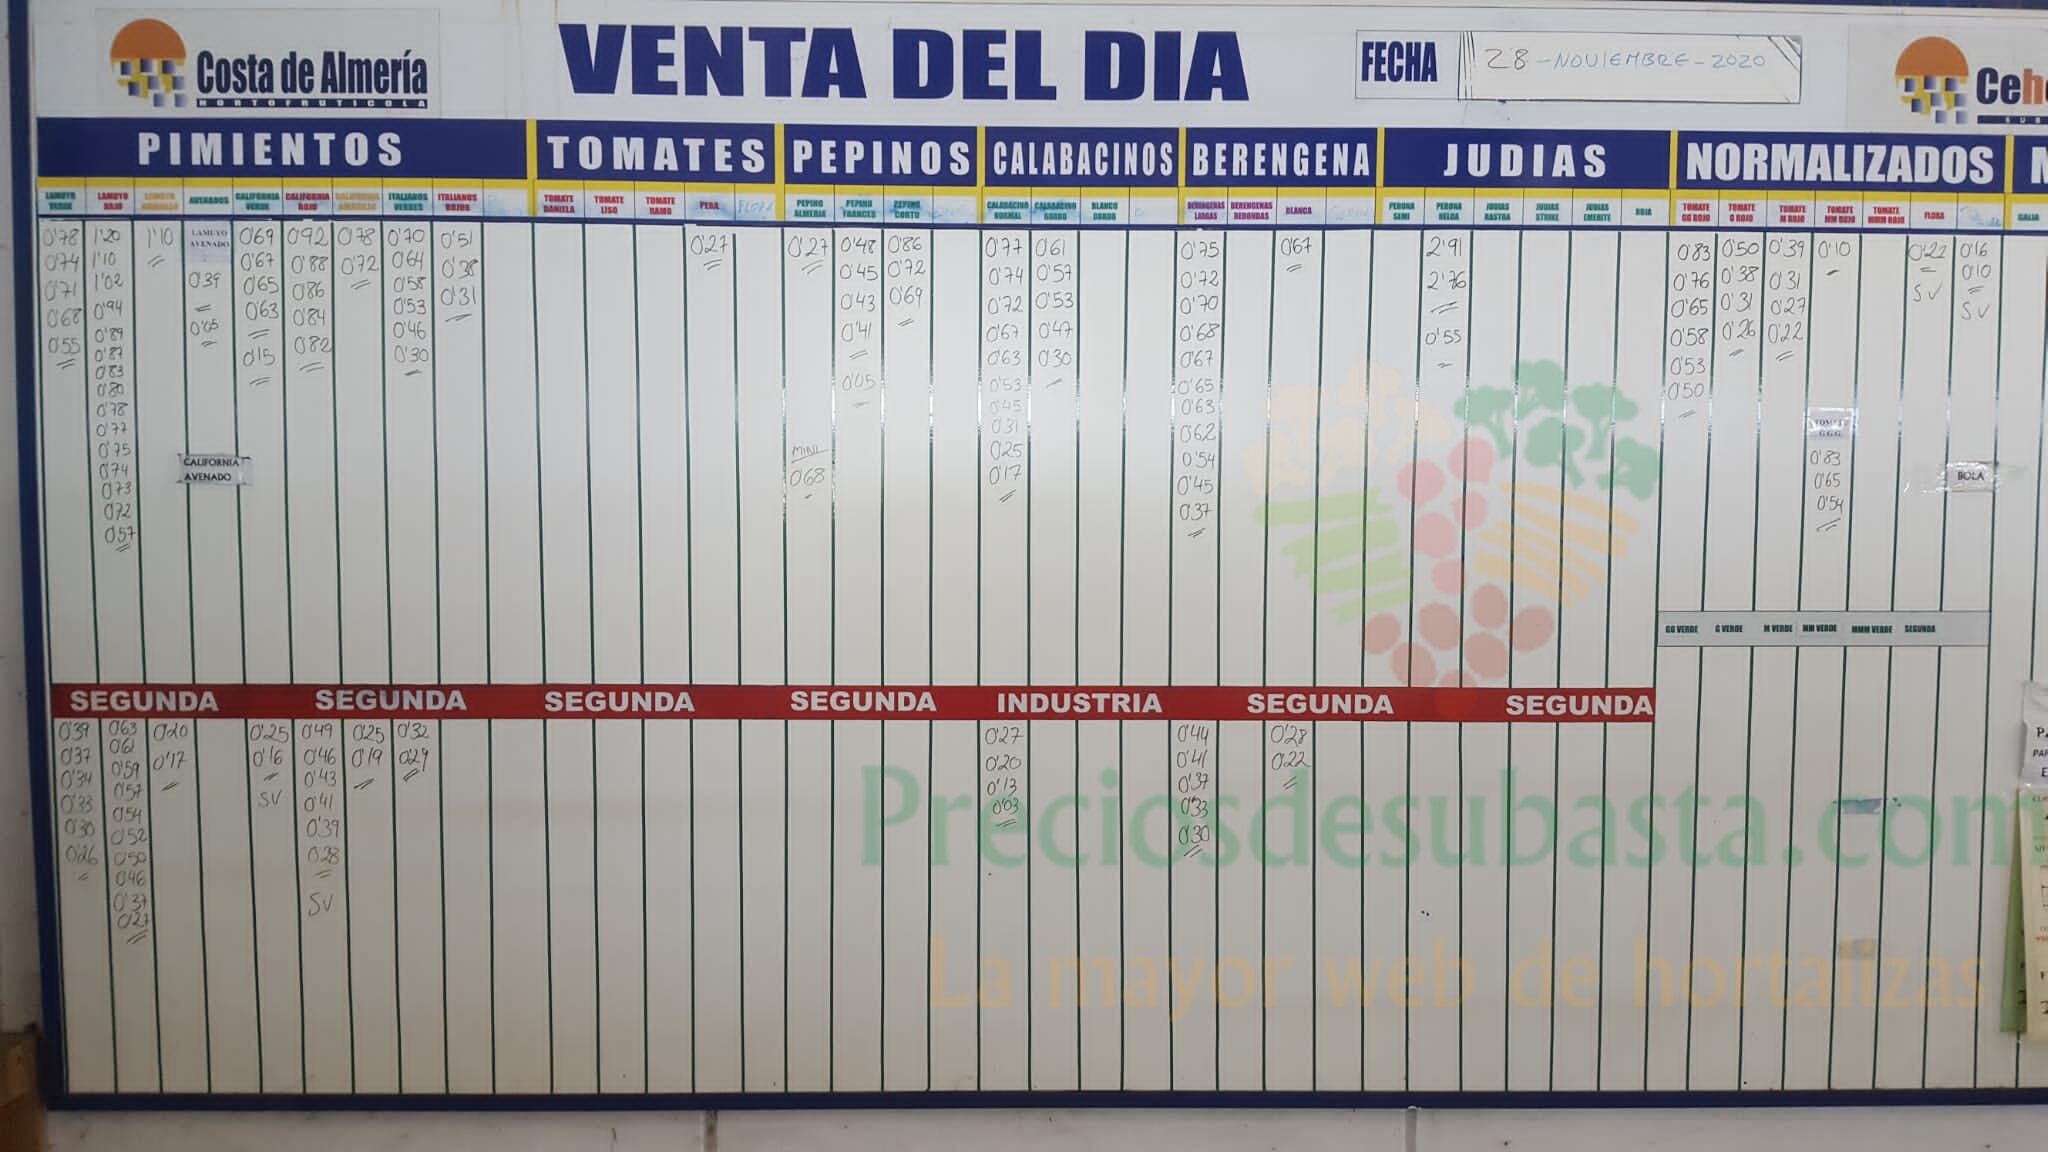 Costa de Almería
HORTOFRUTICOLA
VENTA DEL DIA
FECHA
28-NOVIEMBRE-2020
Ceh
SUB
PIMIENTOS
TOMATES
PEPINOS
CALABACINOS
BERENGENA
JUDIAS
NORMALIZADOS
LAMUYO VERDE
0'78
0'74
0'71
0'68
0'55
LAMUYO ROJO
1'20
1'10
1'02
0'94
0'89
0'87
0'83
0'80
0'78
0'77
0'75
0'74
0'73
0'72
0'57
1'10
AVENADOS
LAMUYO
AVENADO
0'39
0'05
CALIFORNIA
AVENADO
CALIFORNIA VERDE
0'69
0'67
0'65
0'63
0'15
CALIFORNIA ROJO
0'92
0'88
0'86
0'84
0'82
CALIFORNIA AMARILLO
0'78
0'72
ITALIANOS VERDES
0'70
0'64
0'58
0'53
0'46
0'30
ITALIANOS ROJOS
0'51
0'38
0'31
TOMATE DANIELA
TOMATE LISO
TOMATE RAMO
PERA
0'27
PEPINO ALMERIA
0'27
MINI
0'68
PEPINO FRANCES
0'48
0'45
0'43
0'41
0'05
PEPINO CORTO
0'86
0'72
0'69
CALABACINO NORMAL
0'77
0'74
0'72
0'67
0'63
0'53
0'45
0'31
0'25
0'17
CALABACINO GORDO
0'61
0'57
0'53
0'47
0'30
BLANCO GORDO
BERENGENAS LARGAS
0'75
0'72
0'70
0'68
0'67
0'65
0'63
0'62
0'54
0'45
0'37
BERENGENAS REDONDAS
BLANCA
0'67
PERONA SEMI
PERONA HELDA
2'91
2'76
0'55
JUDIAS RASTRA
JUDIAS STRIKE
JUDIAS EMERITE
ROJA
TOMATE GG ROJO
0'83
0'76
0'65
0'58
0'53
0'50
TOMATE G ROJO
0'50
0'38
0'31
0'26
TOMATE M ROJO
0'39
0'31
0'27
0'22
TOMATE MM ROJO
0'10
TOMATE
G.G.G.
0'83
0'65
0'54
TOMATE MMM ROJO
FLORA
0'22
SV
0'16
0'10
SV
BOLA
GALIA
GG VERDE
G VERDE
M VERDE
MM VERDE
MMM VERDE
SEGUNDA
SEGUNDA
SEGUNDA
SEGUNDA
SEGUNDA
INDUSTRIA
SEGUNDA
SEGUNDA
0'39
0'37
0'34
0'33
0'30
0'26
0'63
0'61
0'59
0'57
0'54
0'52
0'50
0'46
0'37
0'27
0'20
0'17
0'25
0'16
SV
0'49
0'46
0'43
0'41
0'39
0'28
SV
0'25
0'19
0'32
0'29
0'27
0'20
0'13
0'03
0'44
0'41
0'37
0'33
0'30
0'28
0'22
Preciosdesubasta.com
La mayor web de hortalizas